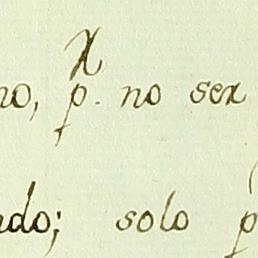 X
no, p. no ser
ndo; solo p